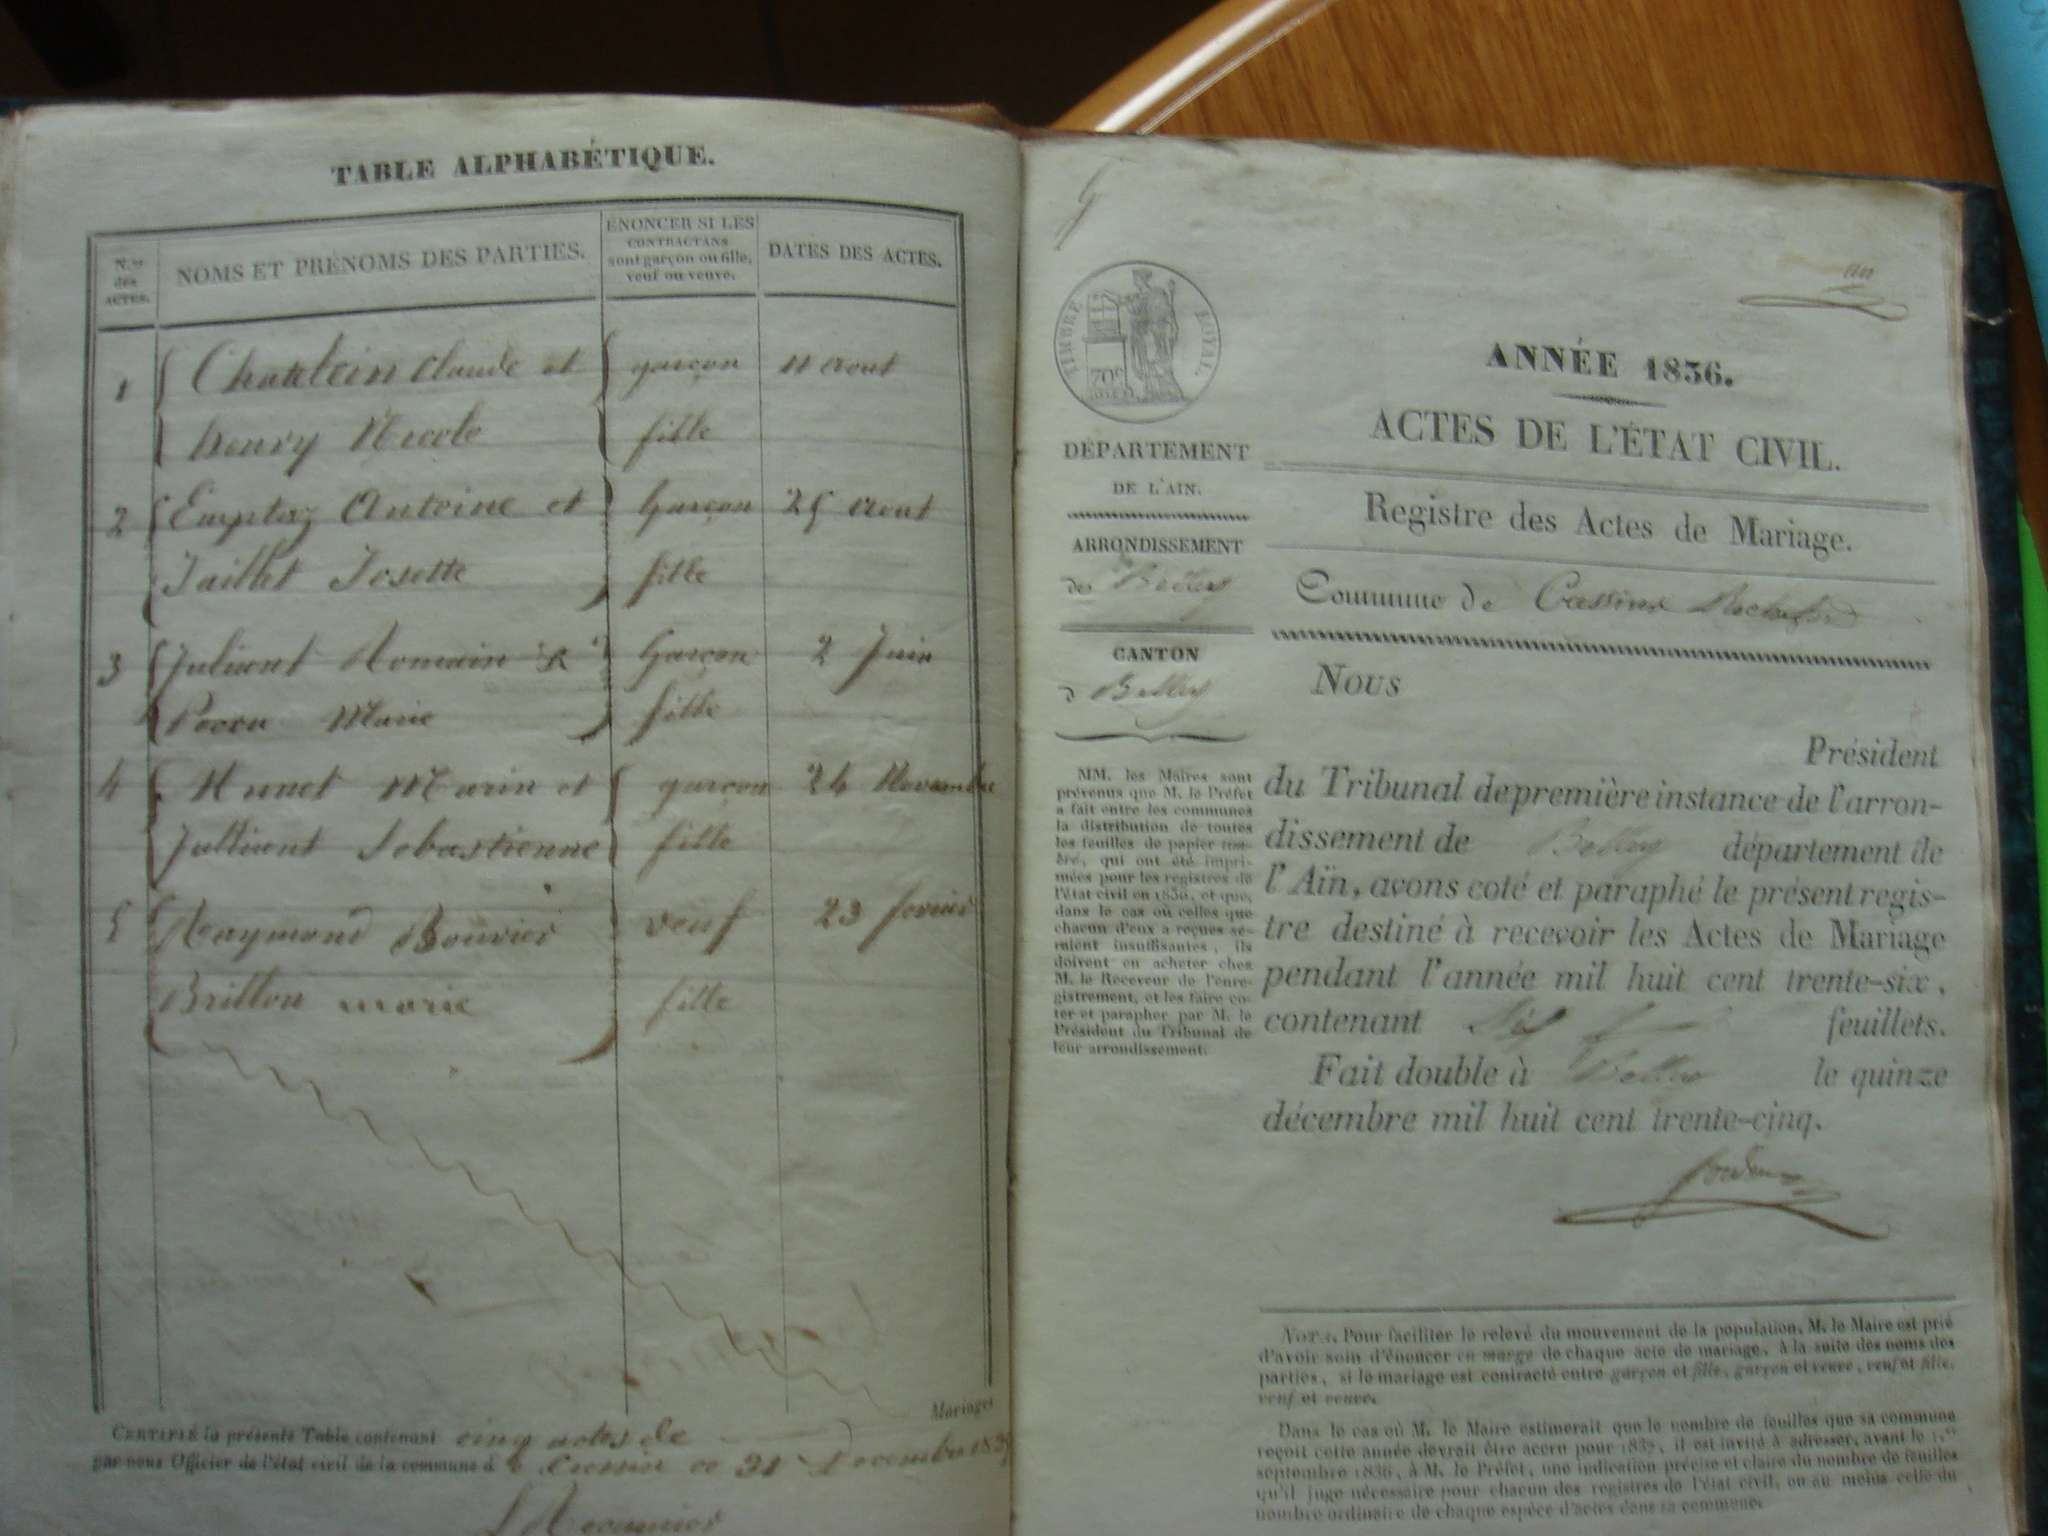 TABLE ALPHABÉTIQUE.
N.os des ACTES.
NOMS ET PRÉNOMS DES PARTIES.
ÉNONCER SI LES
CONTRACTANS
sont garçon ou fille,
veuf ou veuve.
DATES DES ACTES.
1 Chatelein claude et garçon 11 aout
henry Nicole fille
2 Emptoz Antoine et Garçon 25 aout
Jaillet Josette fille
3 Julliant Romain & Garçon 2 Juin
Marie fille
4 Marin et garçon 24 Novembre
Julliant Sebastienne fille
5 Raymond Bouvier veuf 23 fevrier
Brillon marie fille
Mariages
CERTIFIÉ la présente Table contenant cinq actes de
par nous Officier de l'état civil de la commune d ce 31 Decembre
TIMBRE ROYAL.
70c
ANNÉE 1836.
ACTES DE L'ÉTAT CIVIL.
Registre des Actes de Mariage.
Commune de
DÉPARTEMENT
DE L'AIN.
ARRONDISSEMENT
de Belley
CANTON
d Belley
MM. les Maires sont
prévenus que M. le Préfet
a fait entre les communes
la distribution de toutes
les feuilles de papier tim-
bré, qui ont été impri-
mées pour les registres de
l'état civil en 1836, et que,
dans le cas où celles que
chacun d'eux a reçues se-
raient insuffisantes, ils
doivent en acheter chez
M. le Receveur de l'enre-
gistrement, et les faire co-
ter et parapher par M. le
Président du Tribunal de
leur arrondissement.
NOUS
Président
du Tribunal de première instance de l'arron-
dissement de Belley département de
l'Aïn, avons coté et paraphé le présent regis-
tre destiné à recevoir les Actes de Mariage
pendant l'année mil huit cent trente-six,
contenant feuillets.
Fait double à Belley le quinze
décembre mil huit cent trente-cinq.
NOTA. Pour faciliter le relevé du mouvement de la population, M. le Maire est prié
d'avoir soin d'énoncer en marge de chaque acte de mariage, à la suite des noms des
parties, si le mariage est contracté entre garçon et fille, garçon et veuve, veuf et fille,
veuf et veuve.
Dans le cas où M. le Maire estimerait que le nombre de feuilles que sa commune
reçoit cette année devrait être accru pour 1837, il est invité à adresser, avant le 1.er
septembre 1836, à M. le Préfet, une indication précise et claire du nombre de feuilles
qu'il juge nécessaire pour chacun des registres de l'état civil, ou au moins celle du
nombre ordinaire de chaque espèce d'actes dans sa commune.